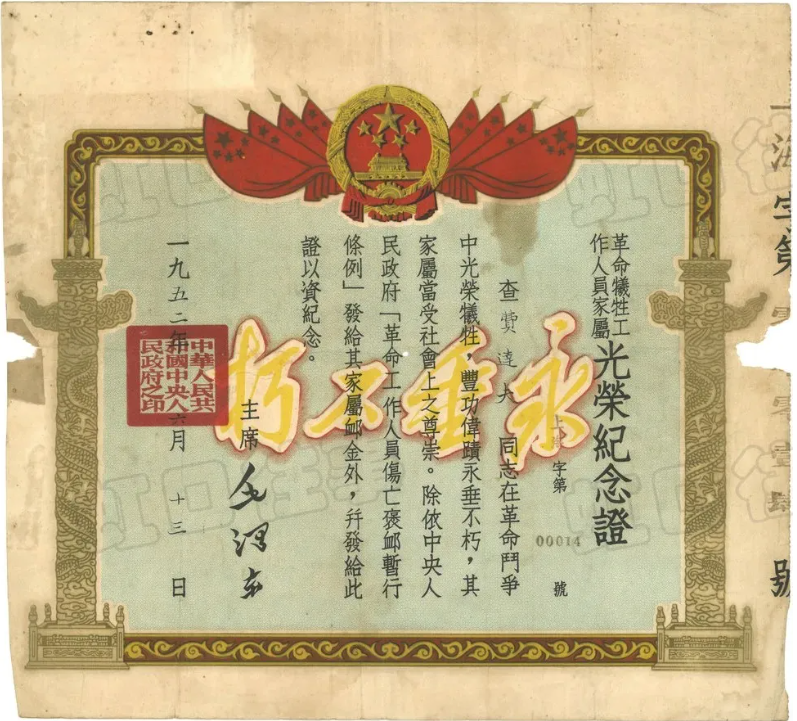 海字第
零壹肆
號
革命犧牲工
作人員家屬
光榮紀念證
上 字第 00014 號
查費達夫同志在革命鬥爭
中光榮犧牲，豐功偉蹟永垂不朽，其
家屬當受社會上之尊崇。除依中央人
民政府「革命工作人員傷亡褒卹暫行
條例」發給其家屬卹金外，幷發給此
證以資紀念。
永垂不朽
主席 毛澤东
一九五二年六月十三日
中華人民共
和國中央人
民政府之印
虹口
虹口